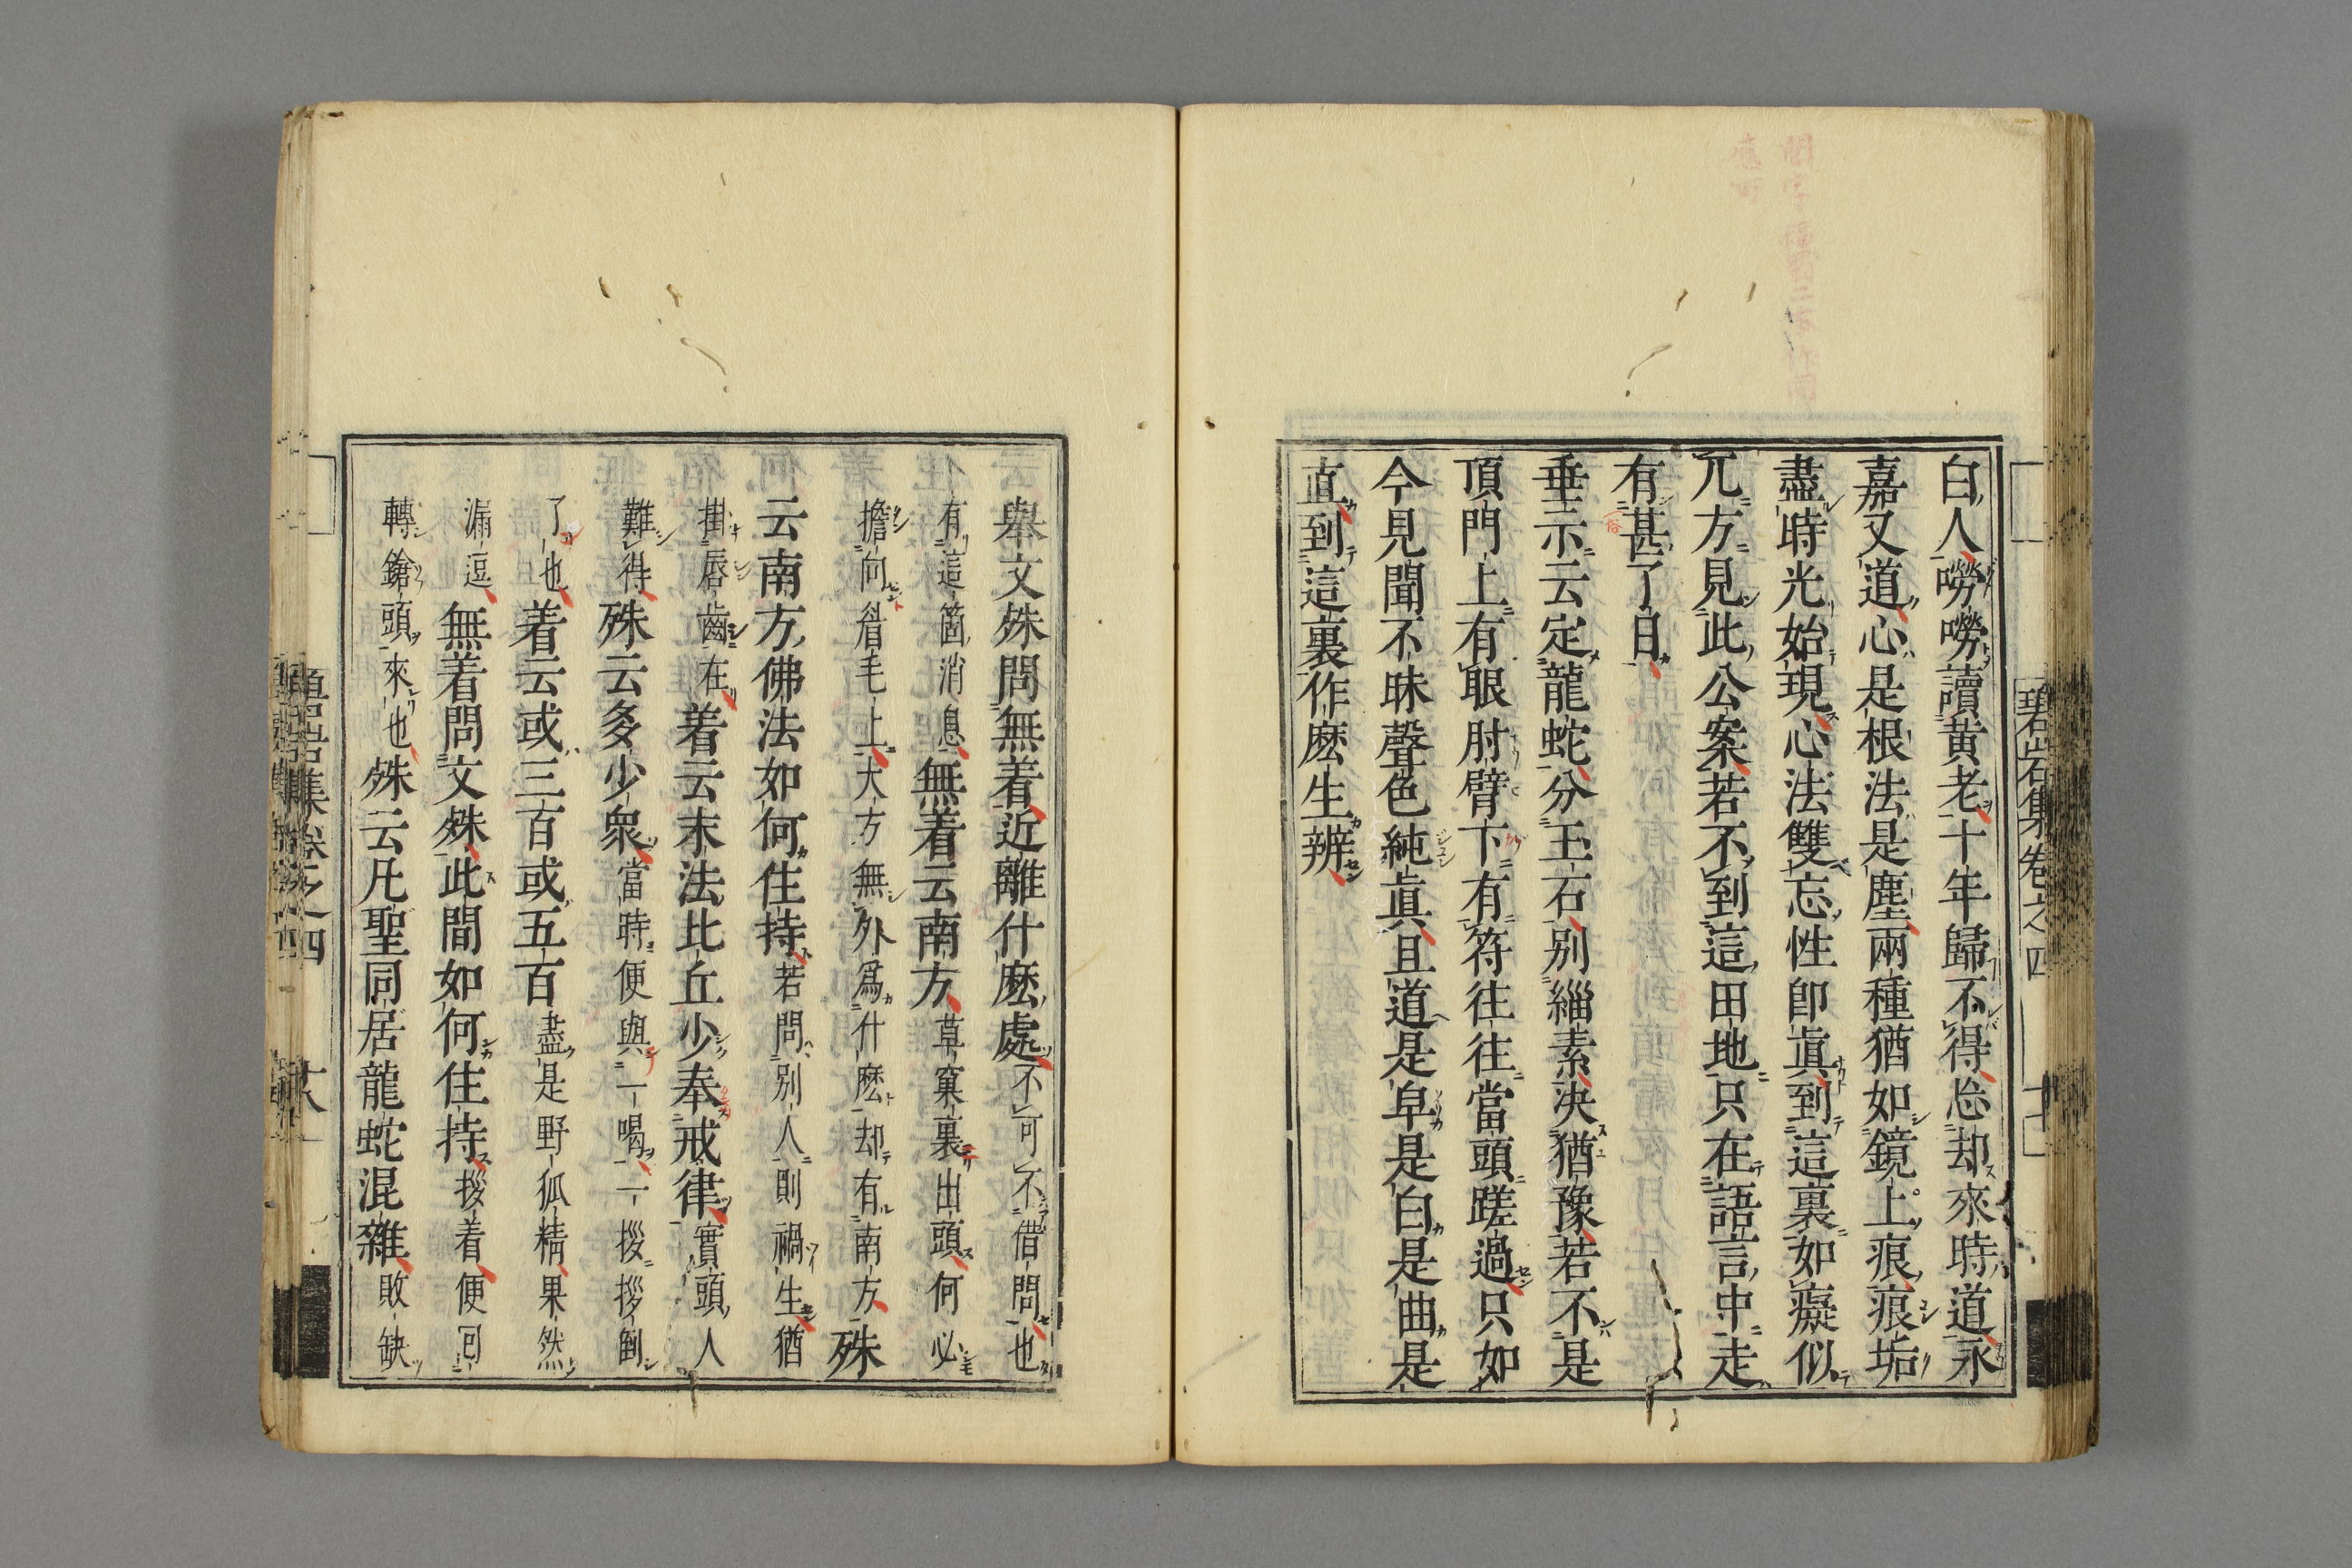 碧岩集卷之四
白人嘮嘮讀黃老十年歸不得忩却來時道永
嘉又道心是根法是塵兩種猶如鏡上痕痕垢
盡時光始現心法雙忘性即眞到這裏如癡似
兀方見此公案若不到這田地只在語言中走
有甚了日
垂示云定龍蛇分玉石別緇素决猶豫若不是
頂門上有眼肘臂下有符往往當頭蹉過只如
今見聞不昧聲色純眞且道是皁是白是曲是
直到這裏作麽生辨
舉文殊問無着近離什麽處不可不借問也
有這箇消息無着云南方草窠裏出頭何必
擔向眉毛上大方無外爲什麽却有南方殊
云南方佛法如何住持若問別人則禍生猶
掛脣齒在着云末法比丘少奉戒律實頭人
難得殊云多少衆當時便與一喝一拶拶倒
了也着云或三百或五百盡是野狐精果然
漏逗無着問文殊此間如何住持拶着便回
轉鎗頭來也殊云凡聖同居龍蛇混雜敗缺